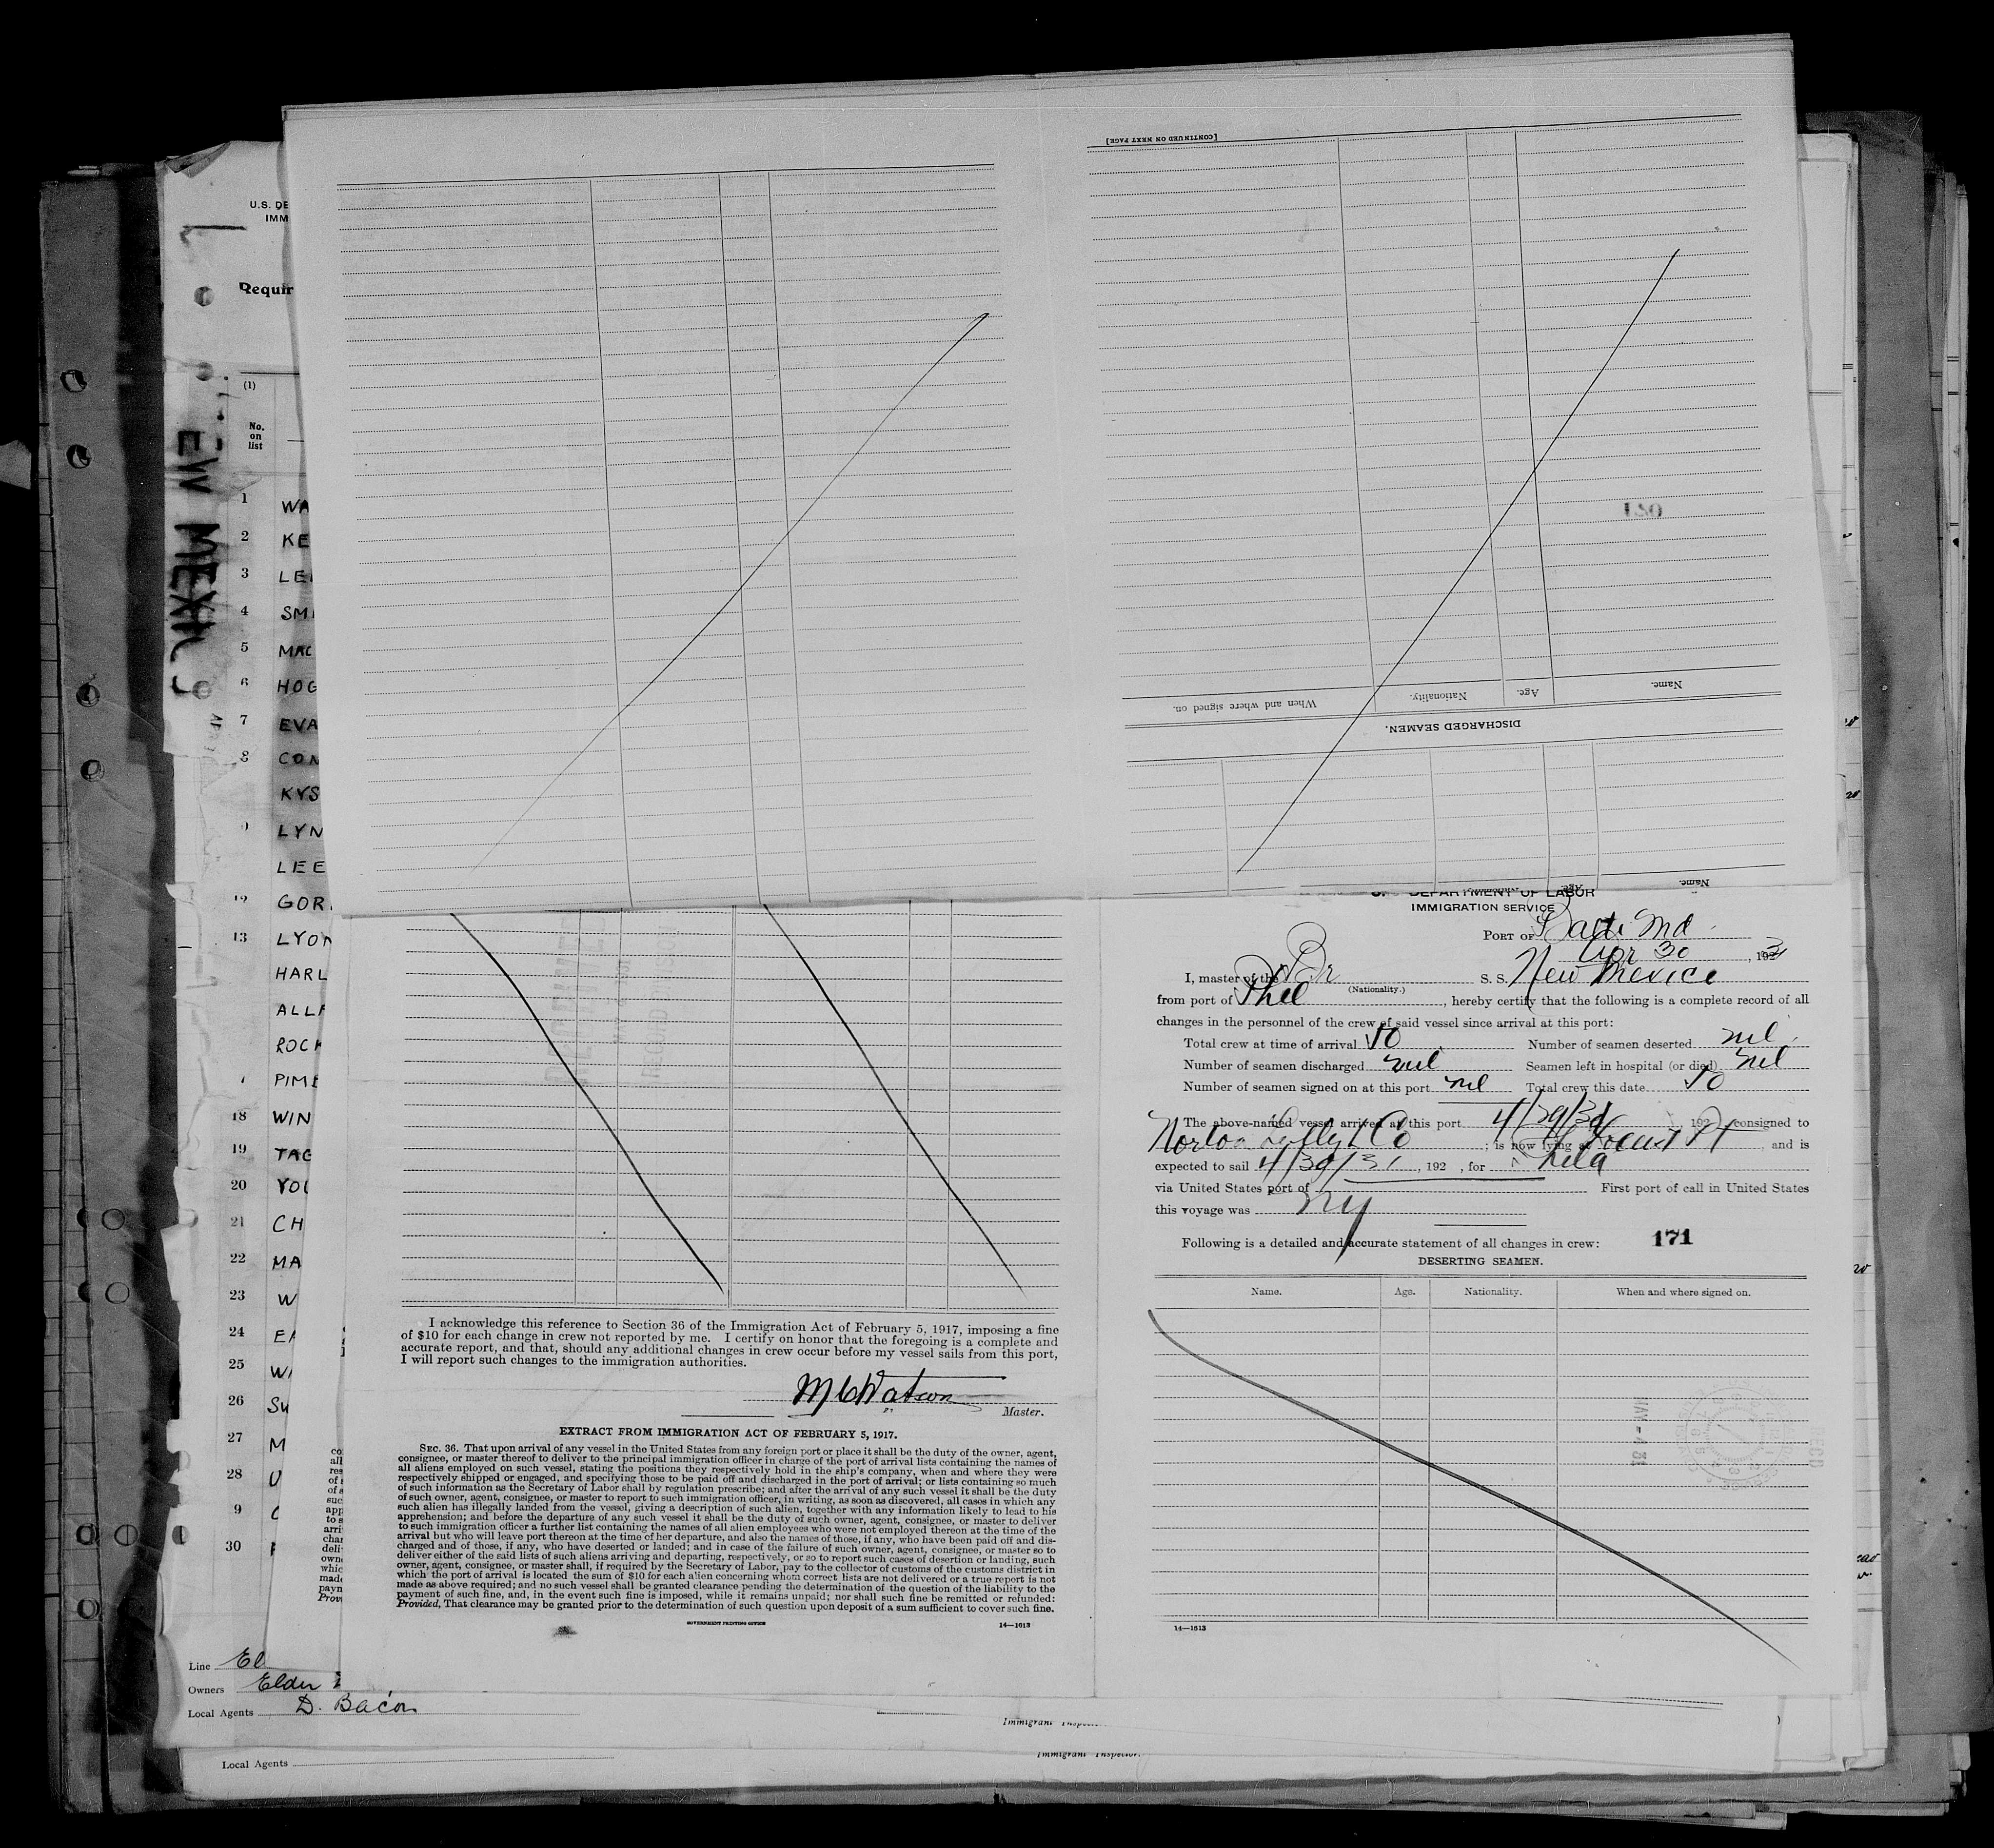 [CONTINUED ON NEXT PAGE]
Name.
Age.
Nationality.
When and where signed on.
DISCHARGED SEAMEN.
Name.
Age.
U.S. DE
IMM
Requir
(1)
No.
on
list
EW MEXIC
1 WA
2 KE
3 LE
4 SMI
5 MAC
6 HOG
7 EVA
8 CON
KYS
LYN
LEE
GOR
13 LYON
HARL
ALLA
ROCK
PIME
18 WIN
19 TAG
20 YOU
21 CH
22 MA
23 W
24 EA
25 WI
26 SU
27 M
28 U
9 C
30
Line El
Owners Elder
Local Agents D. Bacon
Local Agents
Immigrant Inspector.
I acknowledge this reference to Section 36 of the Immigration Act of February 5, 1917, imposing a fine
of $10 for each change in crew not reported by me. I certify on honor that the foregoing is a complete and
accurate report, and that, should any additional changes in crew occur before my vessel sails from this port,
I will report such changes to the immigration authorities.
Watson
Master.
EXTRACT FROM IMMIGRATION ACT OF FEBRUARY 5, 1917.
SEC. 36. That upon arrival of any vessel in the United States from any foreign port or place it shall be the duty of the owner, agent,
consignee, or master thereof to deliver to the principal immigration officer in charge of the port of arrival lists containing the names of
all aliens employed on such vessel, stating the positions they respectively hold in the ship's company, when and where they were
respectively shipped or engaged, and specifying those to be paid off and discharged in the port of arrival; or lists containing so much
of such information as the Secretary of Labor shall by regulation prescribe; and after the arrival of any such vessel it shall be the duty
of such owner, agent, consignee, or master to report to such immigration officer, in writing, as soon as discovered, all cases in which any
such alien has illegally landed from the vessel, giving a description of such alien, together with any information likely to lead to his
apprehension; and before the departure of any such vessel it shall be the duty of such owner, agent, consignee, or master to deliver
to such immigration officer a further list containing the names of all alien employees who were not employed thereon at the time of the
arrival but who will leave port thereon at the time of her departure, and also the names of those, if any, who have been paid off and dis-
charged and of those, if any, who have deserted or landed; and in case of the failure of such owner, agent, consignee, or master so to
deliver either of the said lists of such aliens arriving and departing, respectively, or so to report such cases of desertion or landing, such
owner, agent, consignee, or master shall, if required by the Secretary of Labor, pay to the collector of customs of the customs district in
which the port of arrival is located the sum of $10 for each alien concerning whom correct lists are not delivered or a true report is not
made as above required; and no such vessel shall be granted clearance pending the determination of the question of the liability to the
payment of such fine, and, in the event such fine is imposed, while it remains unpaid; nor shall such fine be remitted or refunded:
Provided, That clearance may be granted prior to the determination of such question upon deposit of a sum sufficient to cover such fine.
GOVERNMENT PRINTING OFFICE
14—1613
DEPARTMENT OF LABOR
IMMIGRATION SERVICE
PORT OF Balti Md.
Apr 30, 1931
I, master of the Br S. S. New Mexico
(Nationality.)
from port of Phil, hereby certify that the following is a complete record of all
changes in the personnel of the crew of said vessel since arrival at this port:
Total crew at time of arrival 50 Number of seamen deserted nil
Number of seamen discharged nil Seamen left in hospital (or died) nil
Number of seamen signed on at this port nil Total crew this date 50
The above-named vessel arrived at this port 4/29/31, 192 , consigned to
Norton Lilly & Co; is now lying at Locust Pt and is
expected to sail 4/30/31, 192 , for Phila
via United States port of First port of call in United States
this voyage was NY
Following is a detailed and accurate statement of all changes in crew: 171
DESERTING SEAMEN.
Name. Age. Nationality. When and where signed on.
14—1613